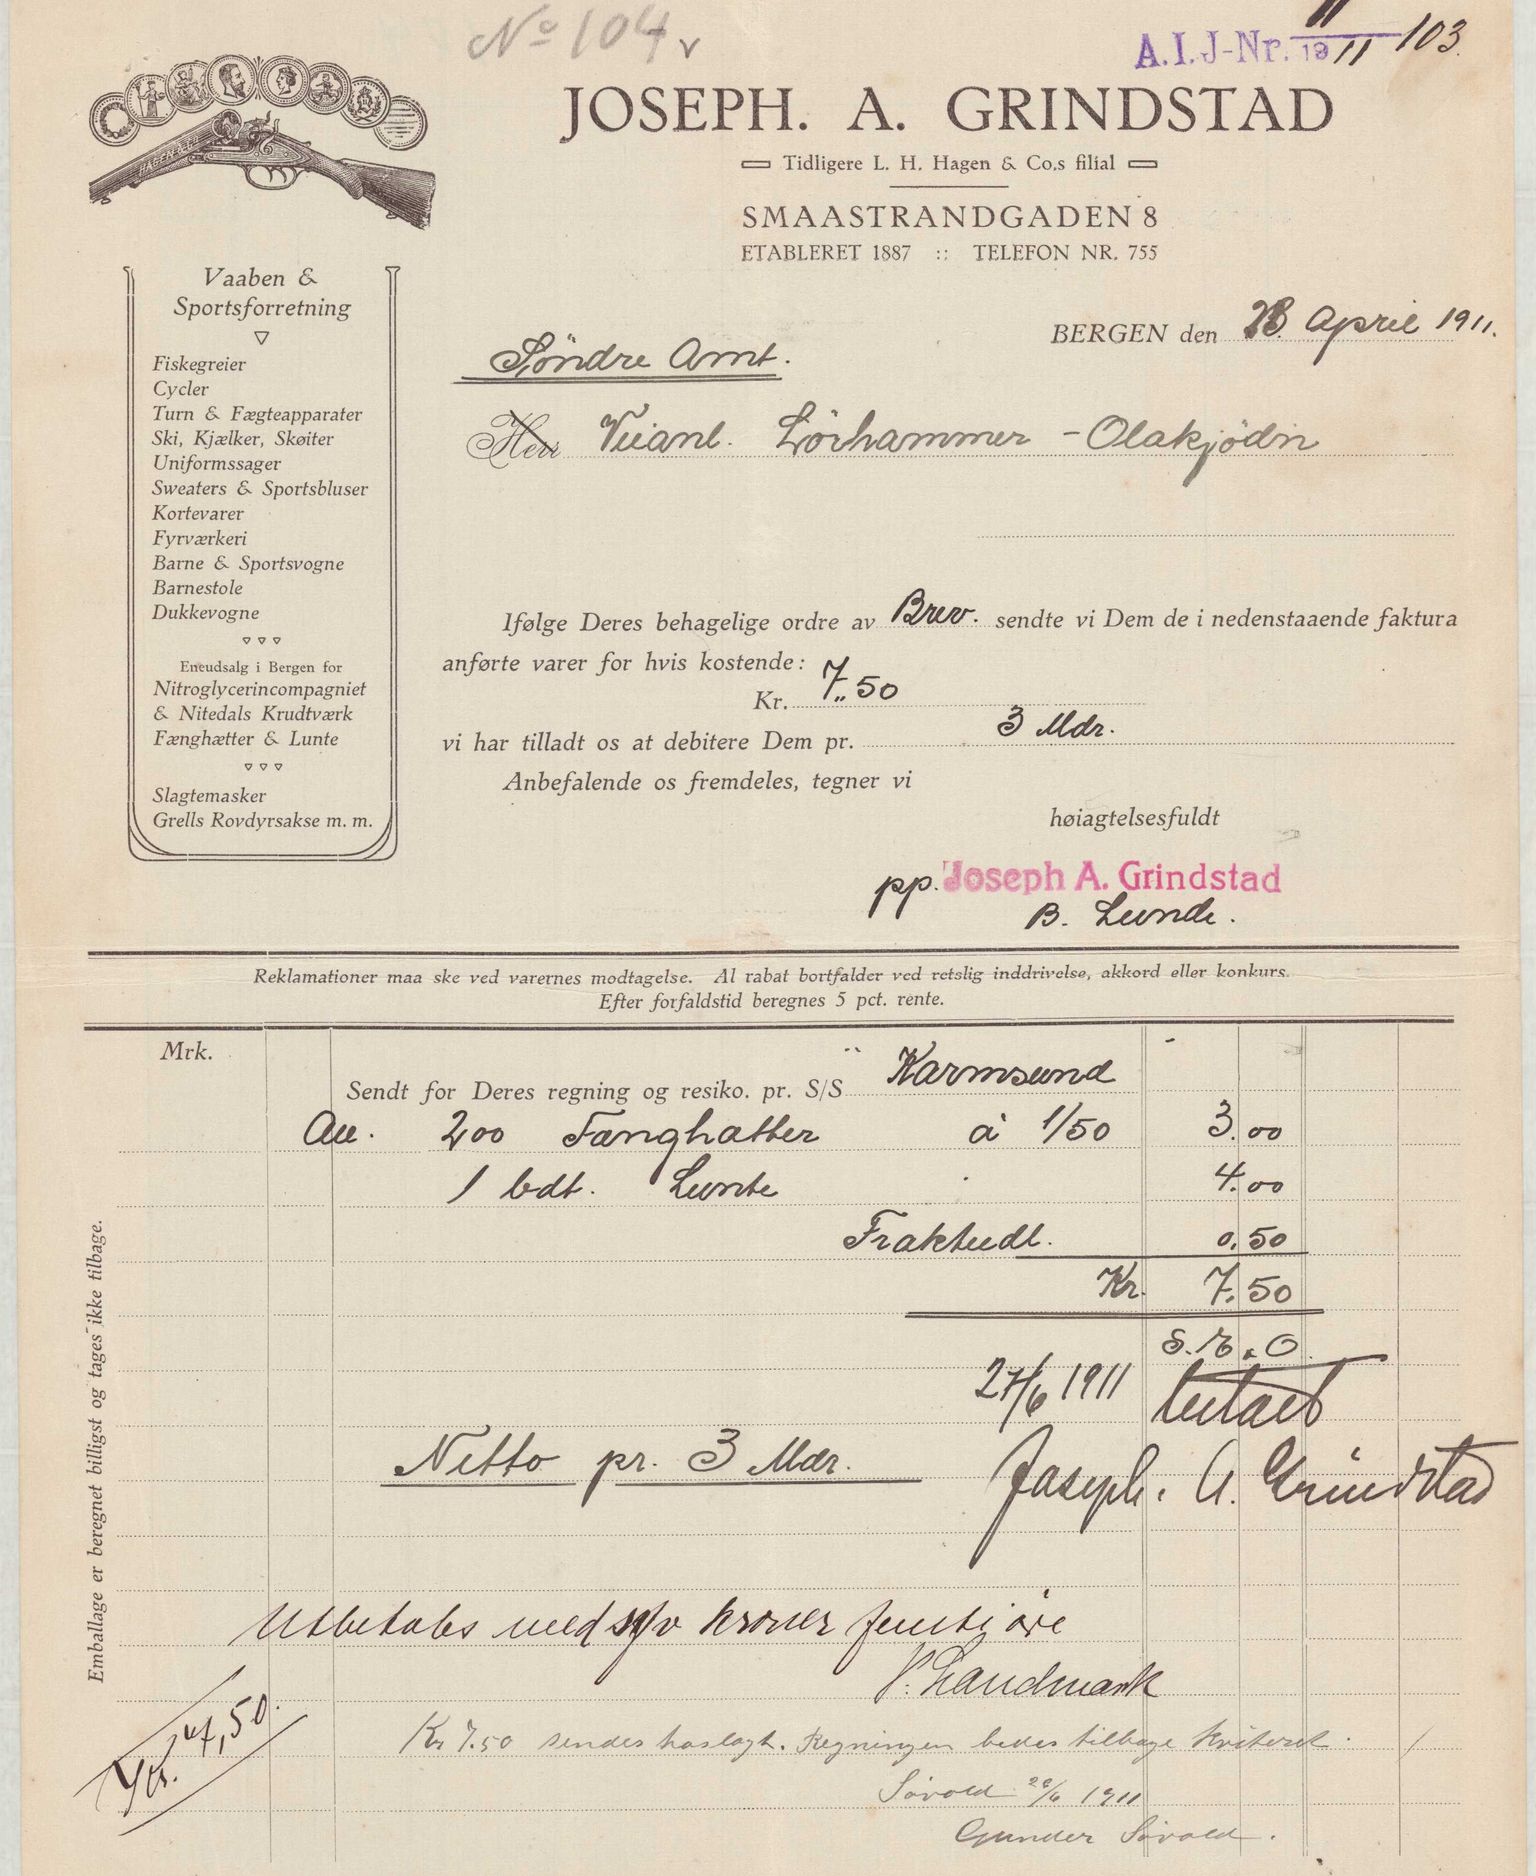 No 104 v
A.I.J-Nr. 11/1911 103.
HAGEN & Co
JOSEPH. A. GRINDSTAD
Tidligere L. H. Hagen & Co.s filial
SMAASTRANDGADEN 8
ETABLERET 1887 :: TELEFON NR. 755
Vaaben &
Sportsforretning
Fiskegreier
Cycler
Turn & Fægteapparater
Ski, Kjælker, Skøiter
Uniformssager
Sweaters & Sportsbluser
Kortevarer
Fyrværkeri
Barne & Sportsvogne
Barnestole
Dukkevogne
Eneudsalg i Bergen for
Nitroglycerincompagniet
& Nitedals Krudtværk
Fænghætter & Lunte
Slagtemasker
Grells Rovdyrsakse m. m.
BERGEN den 28. April 1911.
Söndre Amt.
Herr Veianl. Lörhammer - Olakjödn
Ifølge Deres behagelige ordre av Brev. sendte vi Dem de i nedenstaaende faktura
anførte varer for hvis kostende:
Kr. 7,,50
vi har tilladt os at debitere Dem pr. 3 Mdr.
Anbefalende os fremdeles, tegner vi
høiagtelsesfuldt
pp. Joseph A. Grindstad
B. Lunde.
Reklamationer maa ske ved varernes modtagelse. Al rabat bortfalder ved retslig inddrivelse, akkord eller konkurs.
Efter forfaldstid beregnes 5 pct. rente.
Mrk.
Sendt for Deres regning og resiko. pr. S/S Karmsund
200 Fænghætter à 1/50 3.00
1 bdt. Lunte 4.00
Fraktudl. 0.50
Kr. 7.50
S. E. & O.
27/6 1911
Netto pr. 3 Mdr.
Joseph. A. Grindstad
Utbetales med syv kroner femti øre
Landmark
Kr. 7,50.
Kr 7.50 sendes hoslagt. Regningen bedes tilbage kvitteret.
Sørvold 29/6 1911
Gunder Sørvold.
Emballage er beregnet billigst og tages ikke tilbage.